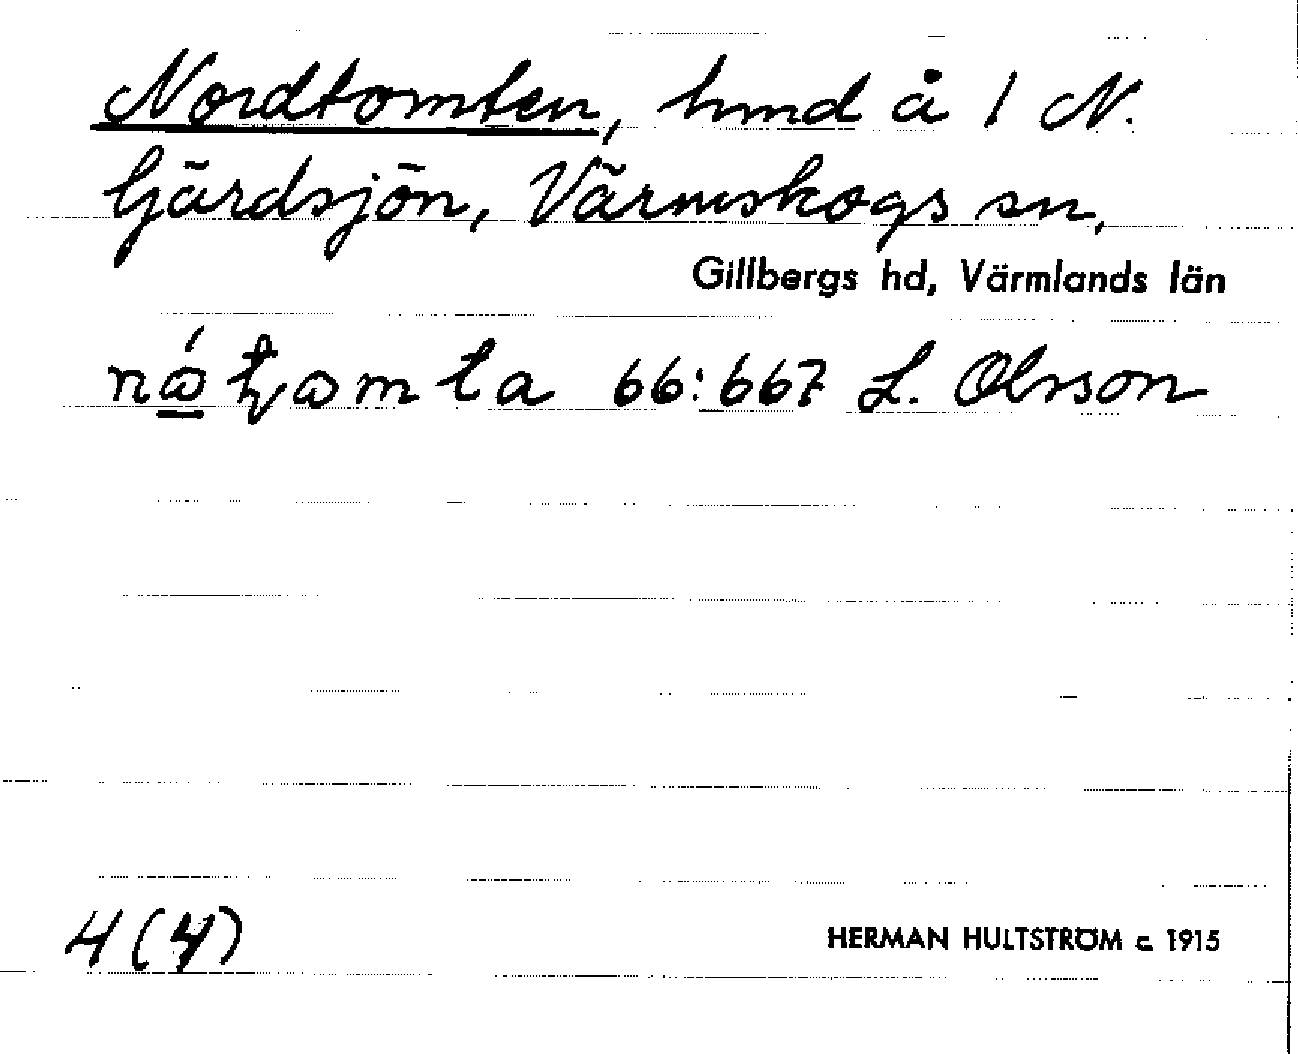 Nordtomten, hmd å 1 N.
Gärdsjön, Värmskogs sn,
Gillbergs hd, Värmlands län
66:667 L. Olsson
4 (4)
HERMAN HULTSTRÖM c. 1915